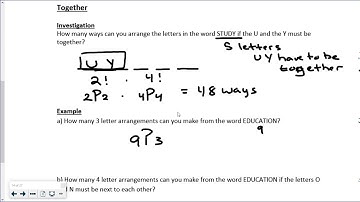 Together
Investigation
How many ways can you arrange the letters in the word STUDY if the U and the Y must be
together?
5 letters
UY have to be
together
UY
2! . 4!
2P2 . 4P4 = 48 ways
Example
a) How many 3 letter arrangements can you make from the word EDUCATION?
9
9P3
b) How many 4 letter arrangements can you make from the word EDUCATION if the letters O
N must be next to each other?